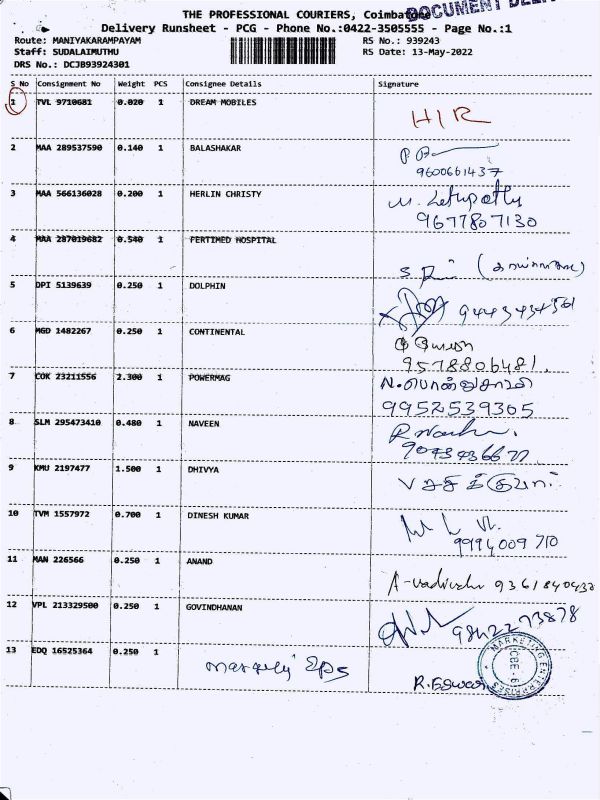 THE PROFESSIONAL COURIERS, Coimbatore
DOCUMENT
Delivery Runsheet - PCG - Phone No.:0422-3505555 - Page No.:1
Route: MANIYAKARAMPAYAM RS No.: 939243
Staff: SUDALAIMUTHU RS Date: 13-May-2022
DRS No.: DCJB93924301
S No Consignment No Weight PCS Consignee Details Signature
1 TVL 9710681 0.020 1 DREAM MOBILES HIR
2 MAA 289537590 0.140 1 BALASHAKAR
9600661437
3 MAA 566136028 0.200 1 HERLIN CHRISTY
9677807130
4 MAA 287019682 0.540 1 FERTIMED HOSPITAL
5 DPI 5139639 0.250 1 DOLPHIN
6 MGD 1482267 0.250 1 CONTINENTAL
9578806481.
7 COK 23211556 2.300 1 POWERMAG
9952539305
8 SLM 295473410 0.480 1 NAVEEN
9 KMU 2197477 1.500 1 DHIVYA
10 TVM 1557972 0.700 1 DINESH KUMAR
9994009710
11 MAN 226566 0.250 1 ANAND
12 VPL 213329500 0.250 1 GOVINDHANAN
9842273878
13 EDQ 16525364 0.250 1
R. Eswari
MARKETING ENTERPRISES
CBE-6